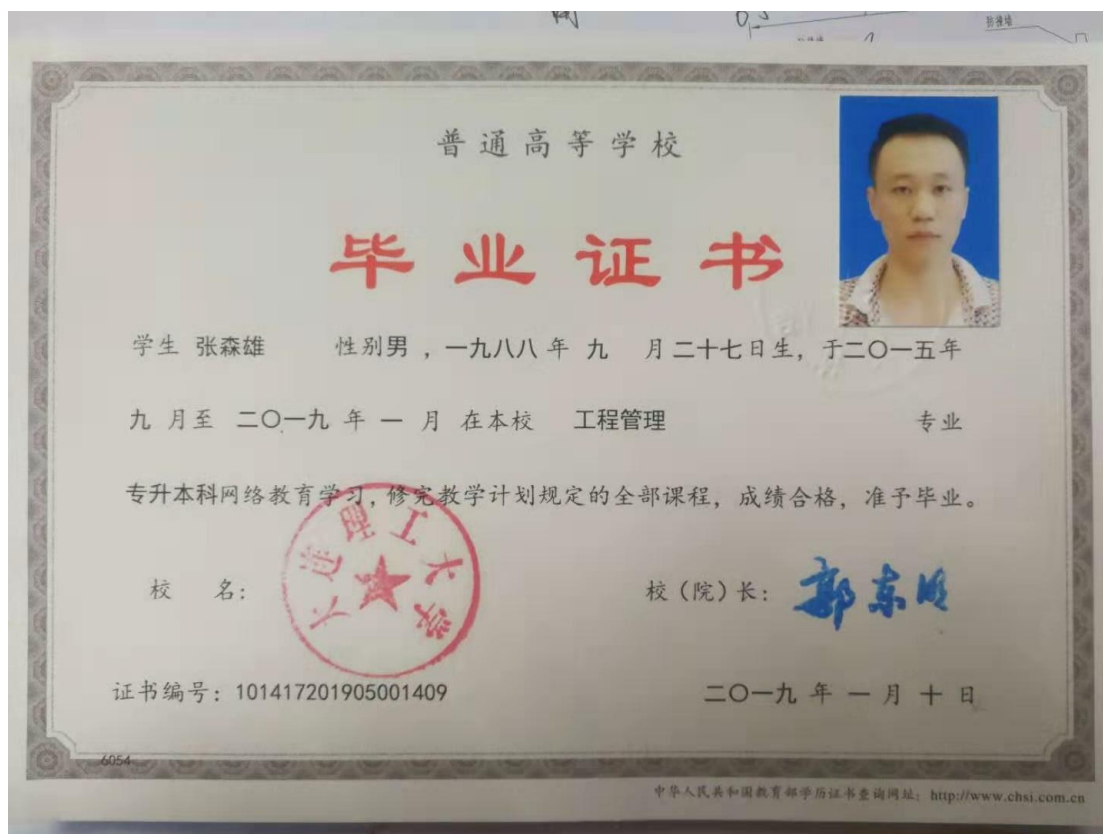 普通高等学校
毕业证书
学生 张森雄 性别男，一九八八年 九 月二十七日生，于二〇一五年
九 月至 二〇一九 年 一 月 在本校 工程管理 专业
专升本科网络教育学习，修完教学计划规定的全部课程，成绩合格，准予毕业。
大连理工大学
校 名： 校（院）长： 郭东明
证书编号：101417201905001409 二〇一九 年 一 月 十 日
6054
中华人民共和国教育部学历证书查询网址：http://www.chsi.com.cn